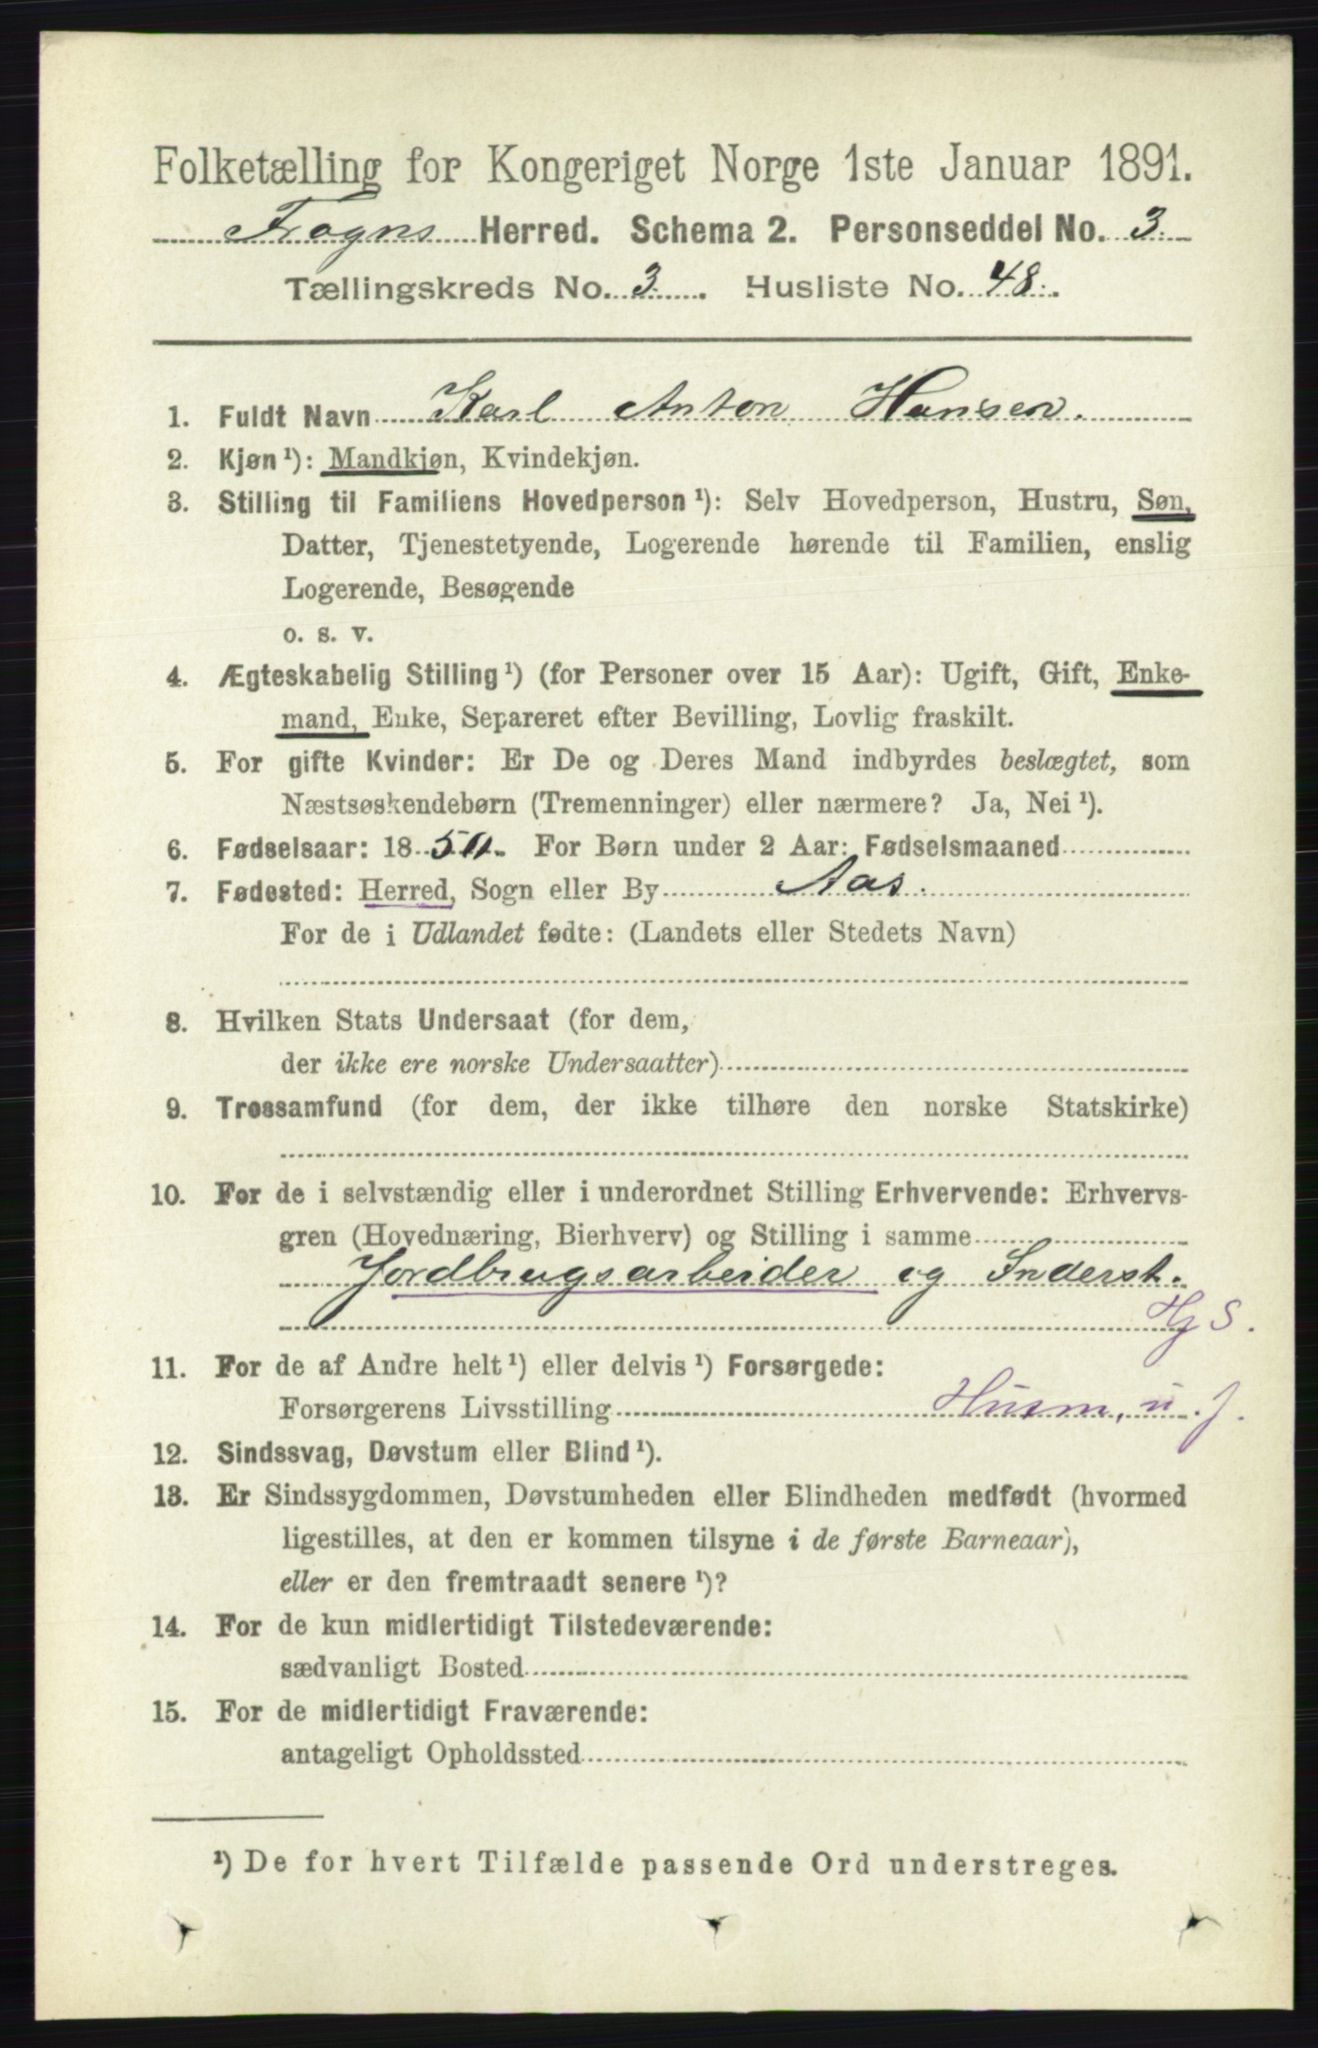 Folketælling for Kongeriget Norge 1ste Januar 1891.
Frogns Herred. Schema 2. Personseddel No. 3.
Tællingskreds No. 3. Husliste No. 48.
1. Fuldt Navn Karl Anton Hansen.
2. Kjøn¹): Mandkjøn, Kvindekjøn.
3. Stilling til Familiens Hovedperson¹): Selv Hovedperson, Hustru, Søn,
Datter, Tjenestetyende, Logerende hørende til Familien, enslig
Logerende, Besøgende
o. s. v.
4. Ægteskabelig Stilling¹) (for Personer over 15 Aar): Ugift, Gift, Enke-
mand, Enke, Separeret efter Bevilling, Lovlig fraskilt.
5. For gifte Kvinder: Er De og Deres Mand indbyrdes beslægtet, som
Næstsøskendebørn (Tremenninger) eller nærmere? Ja, Nei¹).
6. Fødselsaar: 18 For Børn under 2 Aar: Fødselsmaaned
7. Fødested: Herred, Sogn eller By Aas.
For de i Udlandet fødte: (Landets eller Stedets Navn)
8. Hvilken Stats Undersaat (for dem,
der ikke ere norske Undersaatter)
9. Trossamfund (for dem, der ikke tilhøre den norske Statskirke)
10. For de i selvstændig eller i underordnet Stilling Erhvervende: Erhvervs-
gren (Hovednæring, Bierhverv) og Stilling i samme
Jordbrugsarbeider og Inderst.
Hj S.
11. For de af Andre helt¹) eller delvis¹) Forsørgede:
Forsørgerens Livsstilling Husm. u. j.
12. Sindssvag, Døvstum eller Blind¹).
13. Er Sindssygdommen, Døvstumheden eller Blindheden medfødt (hvormed
ligestilles, at den er kommen tilsyne i de første Barneaar),
eller er den fremtraadt senere¹)?
14. For de kun midlertidigt Tilstedeværende:
sædvanligt Bosted
15. For de midlertidigt Fraværende:
antageligt Opholdssted
¹) De for hvert Tilfælde passende Ord understreges.